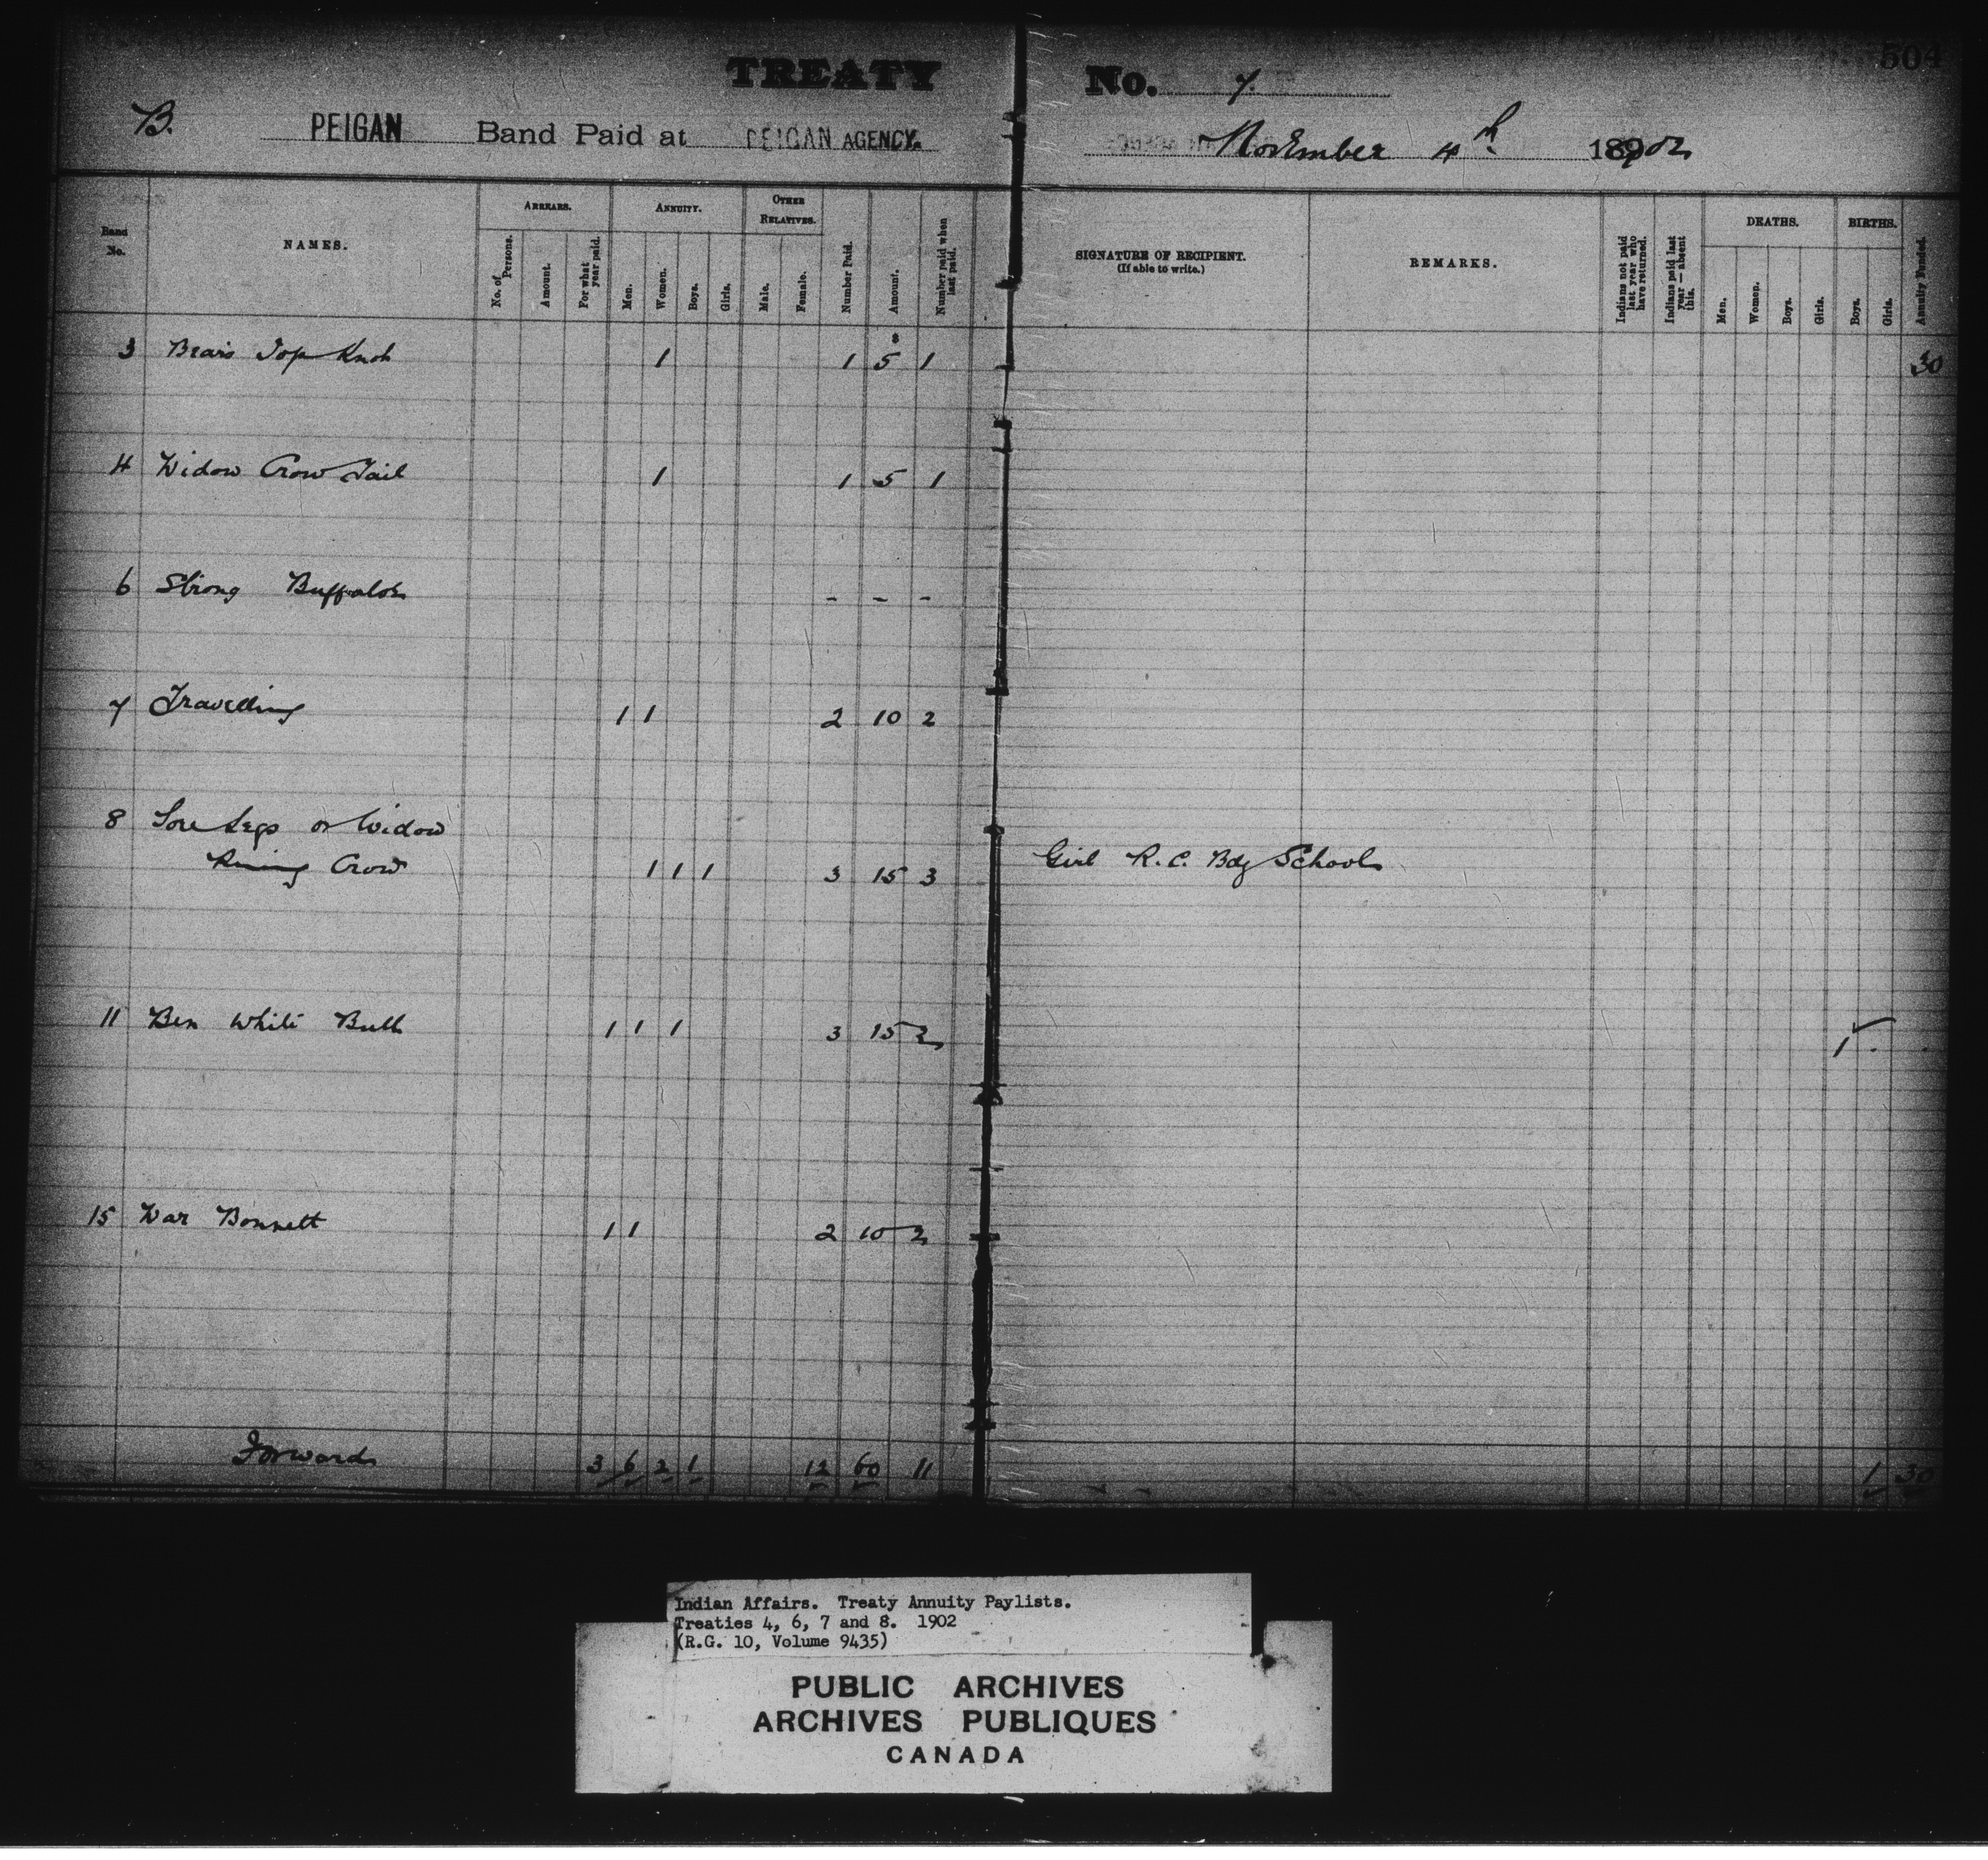 504
TREATY No. 7.
B. PEIGAN Band Paid at PEIGAN AGENCY. November 4th 1902
Band No.
NAMES.
ARREARS.
No. of Persons.
Amount.
For what year paid.
ANNUITY.
Men.
Women.
Boys.
Girls.
OTHER RELATIVES.
Male.
Female.
Number Paid.
Amount.
Number paid when last paid.
SIGNATURE OF RECIPIENT.
(If able to write.)
REMARKS.
Indians not paid last year who have returned.
Indians paid last year—absent this.
DEATHS.
Men.
Women.
Boys.
Girls.
BIRTHS.
Boys.
Girls.
Annuity Funded.
3 Bears Top Knot 1 1 5 1 30
4 Widow Crow Tail 1 1 5 1
6 Strong Buffalo - - -
7 Travelling 1 1 2 10 2
8 Sore Legs or Widow
Crow 1 1 1 3 15 3 Girl R.C. Bdg School
11 Ben White Bull 1 1 1 3 15 2 1
15 War Bonnett 1 1 2 10 2
Forward 3 6 2 1 12 60 11 1 30
Indian Affairs. Treaty Annuity Paylists.
Treaties 4, 6, 7 and 8. 1902
(R.G. 10, Volume 9435)
PUBLIC ARCHIVES
ARCHIVES PUBLIQUES
CANADA